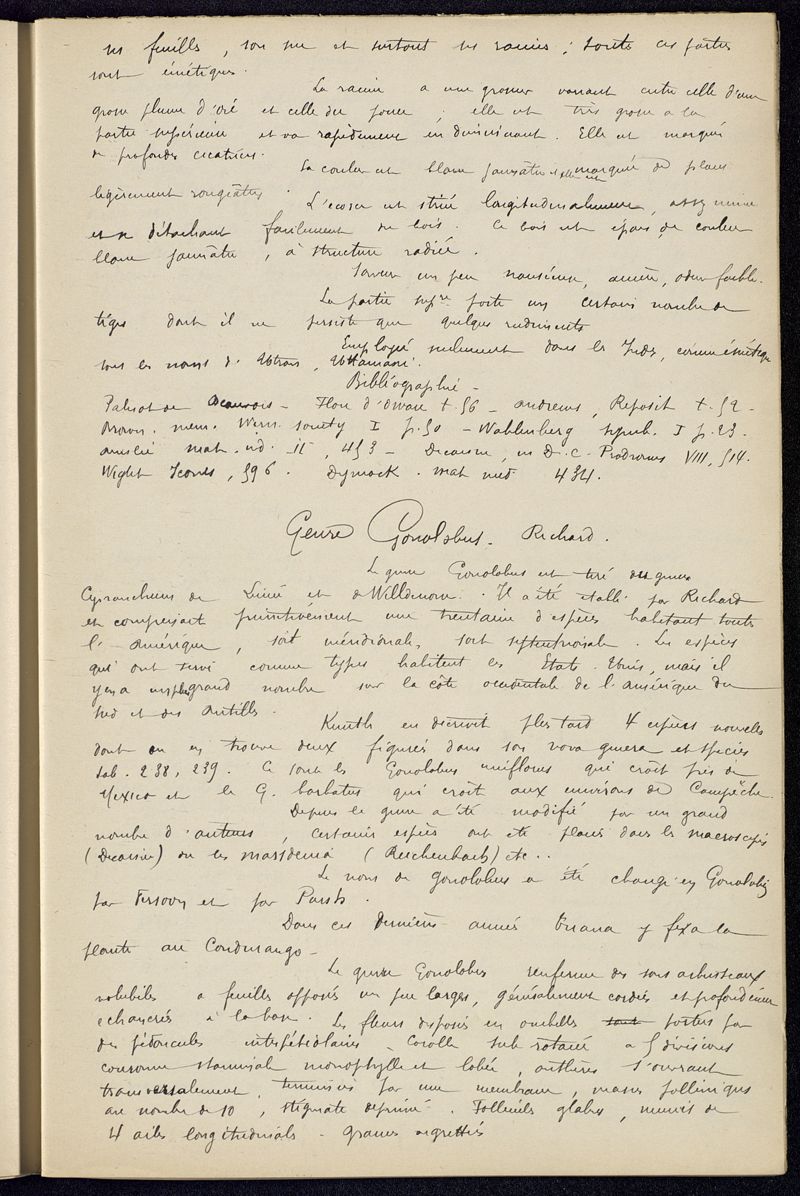 ses feuilles, son suc et surtout ses racines; toutes ces parties
sont émétiques.
La racine a une grosseur variant entre celle d'une
grosse plume d'oie et celle du pouce; elle est très grosse a la
partie supérieure et va rapidement en diminuant. Elle est marquée
de profondes cicatrices.
La couleur est blanc jaunâtre, elle est marquée de places
légèrement rougeâtres.
L'écorce est striée longitudinalement, assez mince
et se détachant facilement du bois. Ce bois est épais, de couleur
blanc jaunâtre, à structure radiée.
Saveur un peu nauséeuse, amère, odeur faible.
La partie supre porte un certain nombre de
tiges dont il ne persiste que quelques rudiments
Employé seulement dans les Indes, comme émétique
sous les noms de
Bibliographie -
Palisot de Beauvois - Flore d'Oware t. 56 - Andrews, Reposit t. 52 -
Brown. mem. Wern. society I p. 50 - Wahlenberg symb. I p. 23.
Ainslie mat. ind. II, 453 - Decaisne, in D.C. Prodromus VIII, 514.
Wight Icones, 596. Dymock. mat med 434.
Genre Gonolobus - Richard.
Le genre Gonolobus est tiré du genre
Cynanchum de Linné et de Willdenow. Il a été établi par Richard
et comprenait primitivement une trentaine d'espèces habitant toutes
l'Amérique, soit méridionale, soit septentrionale. Les espèces
qui ont servi comme types habitent les Etats-Unis, mais il
y en a un plus grand nombre sur la côte occidentale de l'Amérique du
sud et des Antilles.
Kunth en décrivit plus tard 4 espèces nouvelles
dont on en trouve deux figurées dans son nova genera et species
tab. 238, 239. Ce sont les Gonolobus uniflorus qui croît près de
Mexico et le G. barbatus qui croît aux environs de Campêche.
Depuis le genre a été modifié par un grand
nombre d'auteurs, certaines espèces ont été placées dans les macroscepis
(Decaisne) ou les marsdenia (Reichenbach) etc..
Le nom de gonolobus a été changé en Gonolobium
par Persoon et par Pursh.
Dans ces dernières années Triana y fixa la
plante au Condurango -
Le genre Gonolobus renferme des sous arbrisseaux
volubiles a feuilles opposées un peu larges, généralement cordées et profondément
echancrées à la base. Les fleurs disposées en ombelles sont portées par
des pédoncules interpétiolaires - Corolle sub rotacée a 5 divisions
couronne staminale monophylle et lobée, anthères s'ouvrant
transversalement, terminées par une membrane, masses polliniques
au nombre de 10, stigmate déprimé. Follicules glabres, munis de
4 ailes longitudinales - graines aigrettées